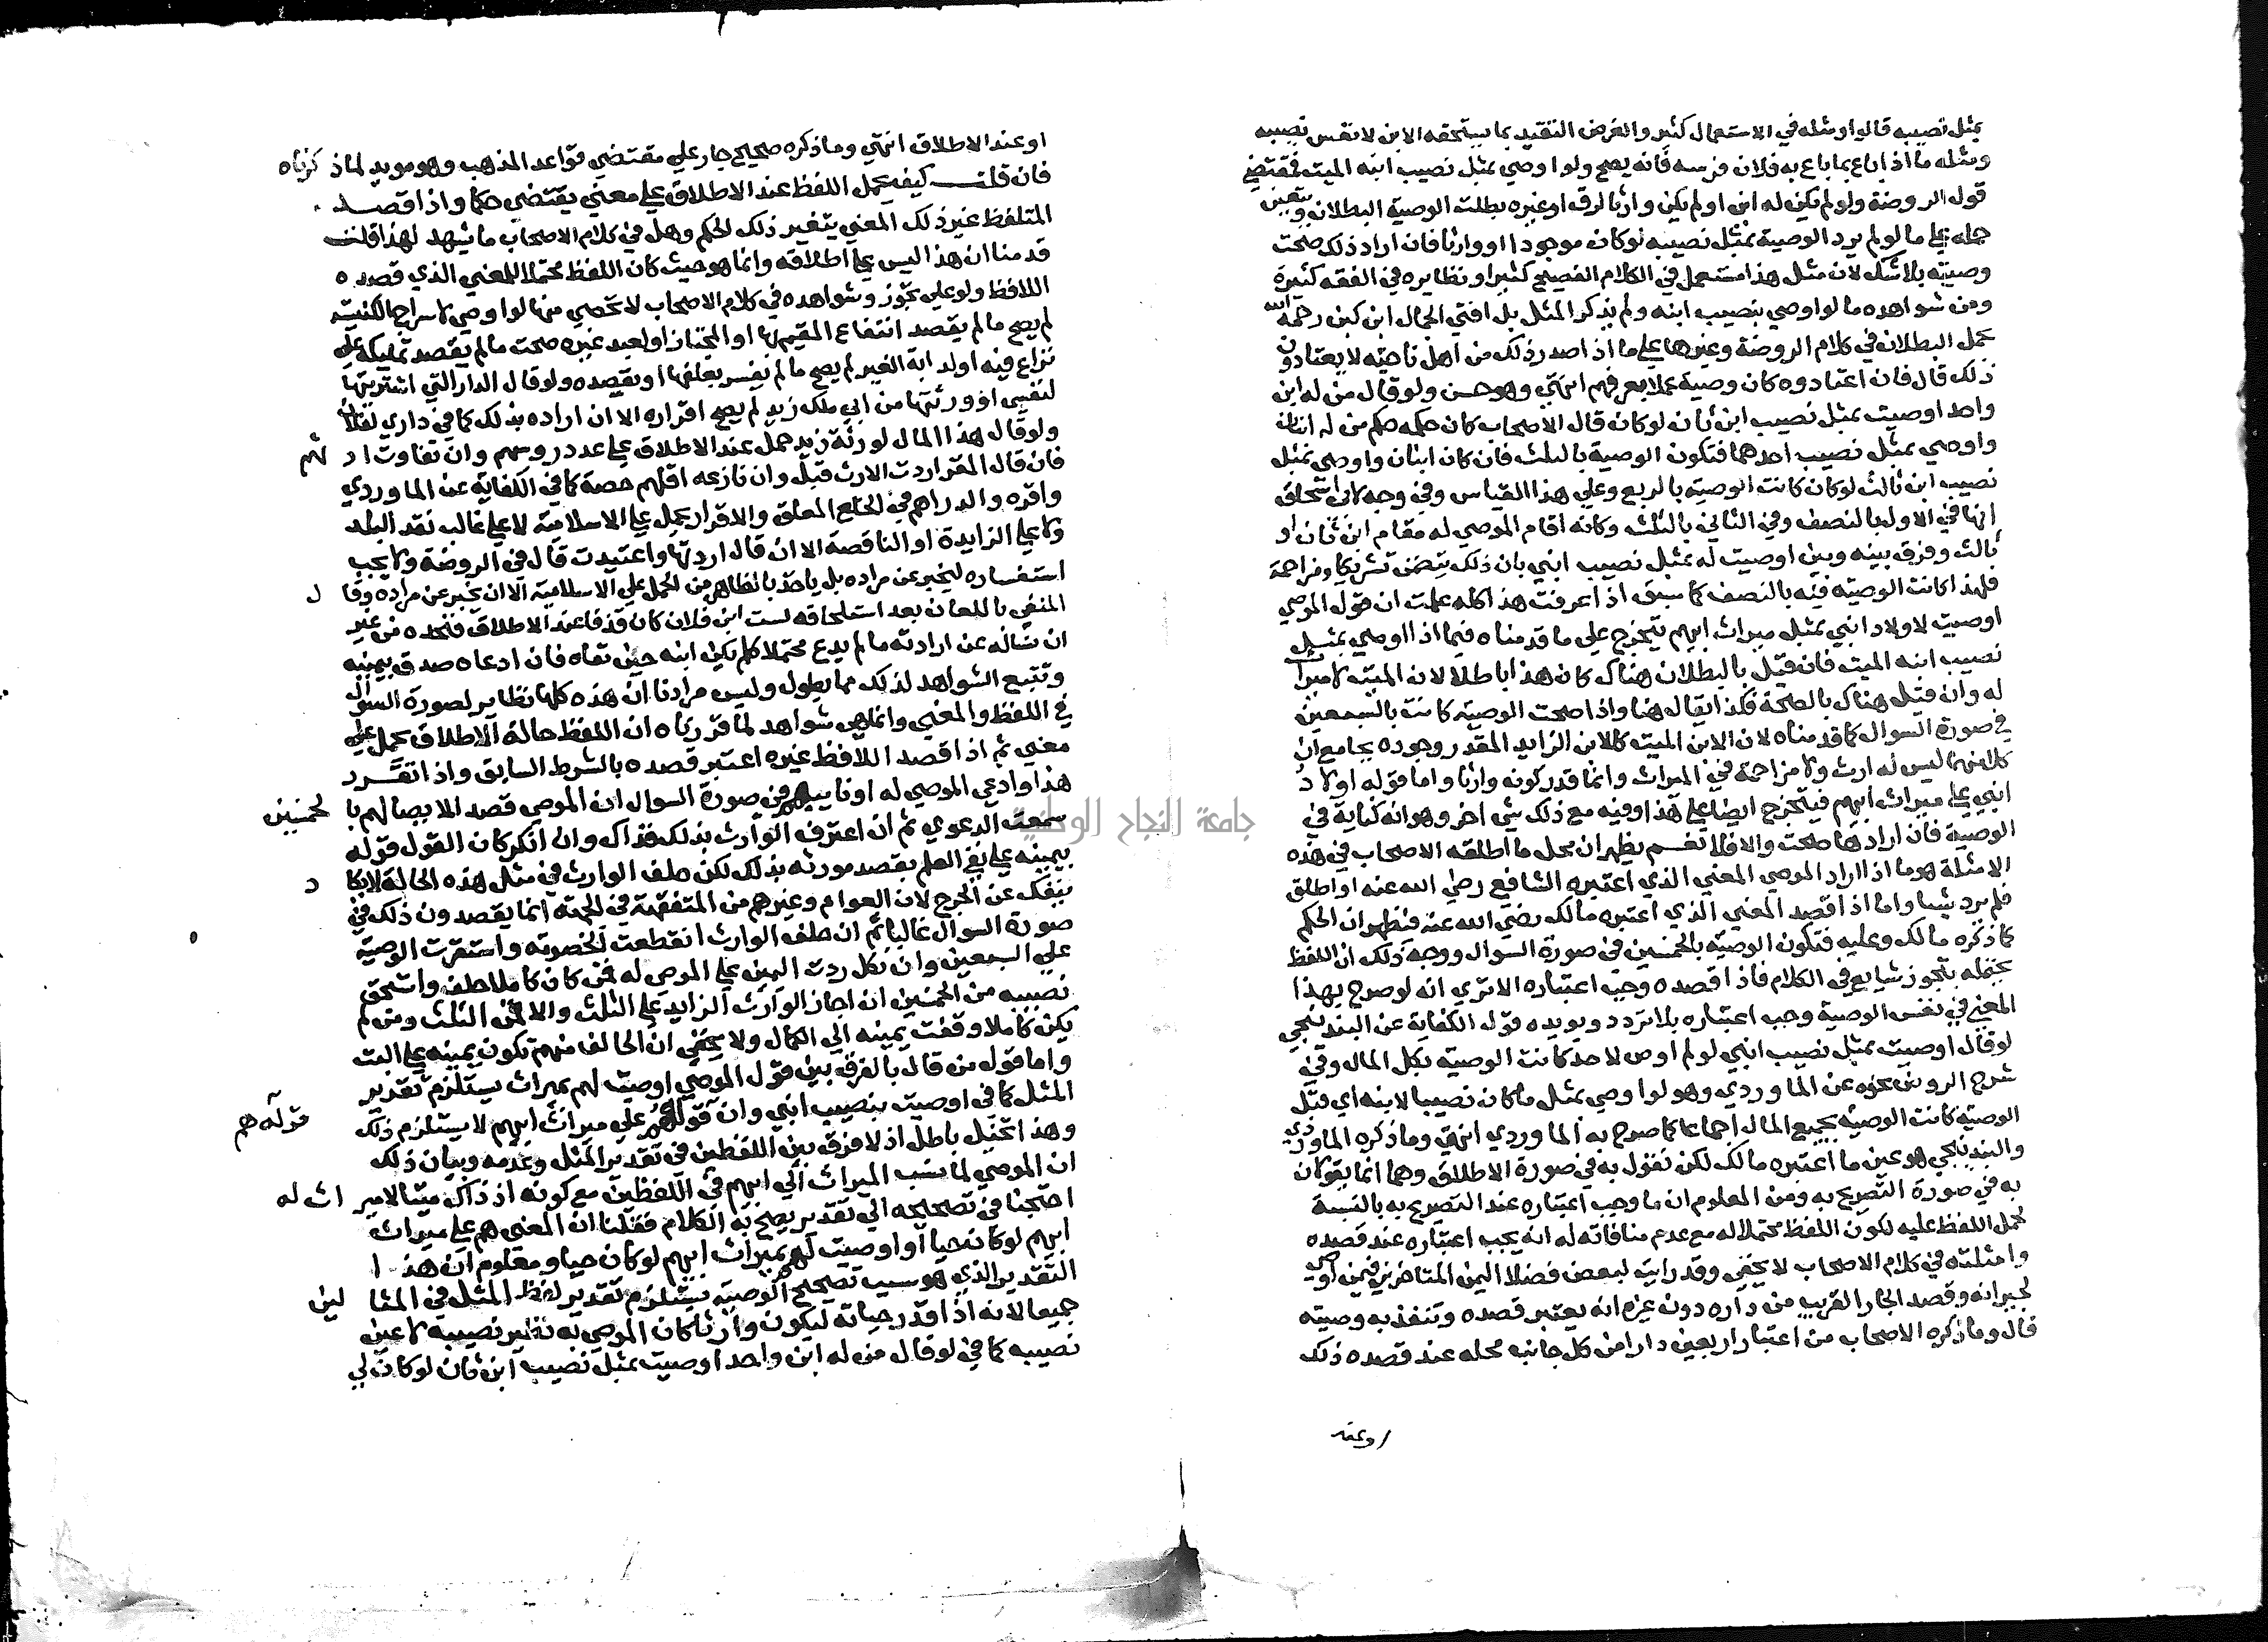 بمثل نصيبه قالوا ومثله في الاستعمال كثير والغرض التقييد بما يستحقه الابن لا نفس نصيبه
ومثله ما اذا باع بما باع به فلان فرسه فانه يصح ولو اوصي بمثل نصيب ابنه الميت فمقتضي
قول الروضة ولو لم يكن له ابن او لم يكن وارثا لرق او غيره بطلت الوصية البطلان ويتعين
حمله علي ما لو لم يرد الوصية بمثل نصيبه لو كان موجودا او وارثا فان اراد ذلك صحت
وصيته بلا شك لان مثل هذا مستعمل في الكلام الفصيح كثيرا ونظايره في الفقه كثيرة
ومن شواهده ما لو اوصي بنصيب ابنه ولم يذكر المثل بل افتي الجمال ابن كبن رحمه الله
بحمل البطلان في كلام الروضة وغيرها علي ما اذا صدر ذلك من اهل ناحية لا يعتادون
ذلك قال فان اعتادوه كان وصية عملا بعرفهم انتهي وهو حسن ولو قال من له ابن
واحد اوصيت بمثل نصيب ابن ثان لو كان قال الاصحاب كان حكمه حكم من له ابنان
واوصي بمثل نصيب احدهما فتكون الوصية بالثلث فان كان ابنان واوصي بمثل
نصيب ابن ثالث لو كان كانت الوصية بالربع وعلي هذا القياس وفي وجه لابي اسحاق
انها في الاول بالنصف وفي الثاني بالثلث وكانه اقام الموصي له مقام ابن ثان او
ثالث وفرق بينه وبين اوصيت له بمثل نصيب ابني بان ذلك يتضمن تشريكا ومزاحمة
فلهذا كانت الوصية فيه بالنصف كما سبق اذا عرفت هذا كله علمت ان قول الموصي
اوصيت لاولاد ابني بمثل ميراث ابيهم يتخرج علي ما قدمناه فيما اذا اوصي بمثل
نصيب ابنه الميت فان قيل بالبطلان هناك كان هذا باطلا لان الميت لا ميراث
له وان قيل هناك بالصحة فكذا يقال هنا واذا صحت الوصية كانت بالسبعين
في صورة السوال كما قدمناه لان الابن الميت كالابن الزايد المقدر وجوده بجامع ان
كلا منهما ليس له ارث ولا مزاحمة في الميراث وانما قدر كونه وارثا واما قوله اولاد
ابني علي ميراث ابيهم فيتخرج ايضا علي هذا وفيه مع ذلك شي اخر وهو انه كناية في
الوصية فان ارادها صحت والا فلا نعم يظهر ان محل ما اطلقه الاصحاب في هذه
الامثلة هو ما اذا اراد الموصي المعني الذي اعتبره الشافعي رضي الله عنه او اطلق
فلم يرد شيا واما اذا قصد المعني الذي اعتبره مالك رضي الله عنه فيظهر ان الحكم
كما ذكره مالك وعليه فتكون الوصية بالخمسين في صورة السوال ووجه ذلك ان اللفظ
يحتمله بتجوز شايع في الكلام فاذا قصده وجب اعتباره الا تري انه لو صرح بهذا
المعني في نفس الوصية وجب اعتباره بلا تردد ويويده قول الكفاية عن البندنيجي
لو قال اوصيت بمثل نصيب ابني لو لم اوص لاحد كانت الوصية بكل المال وفي
شرح الروض نحوه عن الماوردي وهو لو اوصي بمثل ما كان نصيبا لابنه اي قبل
الوصية كانت الوصية بجميع المال اجماعا كما صرح به الماوردي انتهي وما ذكره الماوردي
والبندنيجي هو عين ما اعتبره مالك لكن نقول به في صورة الاطلاق وهما انما يقولان
به في صورة التصريح به ومن المعلوم ان ما وجب اعتباره عند التصريح به بالنسبة
لحمل اللفظ عليه لكون اللفظ محتملا له مع عدم منافاته له انه يجب اعتباره عند قصده
وامثلته في كلام الاصحاب لا تخفي وقد رايت لبعض فضلا اليمن المتاخرين فيمن اوصي
لجيرانه وقصد الجار القريب من داره دون غيره انه يعتبر قصده وتنفذ به وصيته
قال وما ذكره الاصحاب من اعتبار اربعين دارا من كل جانب محله عند قصده ذلك
او عند
او عند الاطلاق انتهي وما ذكره صحيح جار علي مقتضي قواعد المذهب وهو مويد لما ذكرناه
فان قلت كيف يحمل اللفظ عند الاطلاق علي معني يقتضي حكما واذا قصد
المتلفظ غير ذلك المعني يتغير ذلك الحكم وهل في كلام الاصحاب ما يشهد لهذا قلت
قدمنا ان هذا ليس علي اطلاقه وانما هو حيث كان اللفظ محتملا للمعني الذي قصده
اللافظ ولو علي تجوز وشواهده في كلام الاصحاب لا تحصي منها لو اوصي لاسراج الكنيسة
لم يصح ما لم يقصد انتفاع المقيم بها او المجتاز او لعبد غيره صحت ما لم يقصد تمليكه علي
نزاع فيه او لدابة الغير لم يصح ما لم يفسر بعلفها او يقصده ولو قال الدار التي اشتريتها
لنفسي او ورثتها من ابي ملك زيد لم يصح اقراره الا ان اراده بذلك كما في داري لفلان
ولو قال هذا المال لورثة زيد حمل عند الاطلاق علي عدد روسهم وان تفاوت ارثهم
فان قال المقر اردت الارث قبل وان نازعه اقلهم حصة كما في الكفاية عن الماوردي
واقره والدراهم في الخلع المعلق والاقرار يحمل علي الاسلامية لا علي غالب نقد البلد
ولا علي الزايدة او الناقصة الا ان قال اردتها واعتيدت قال في الروضة ولا يجب
استفساره ليخبر عن مراده بل ياخذ بالظاهر من الحمل علي الاسلامية الا ان يخبر عن مراده وقال
المنفي باللعان بعد استلحاقه لست ابن فلان كان قذفا عند الاطلاق فنحده من غير
ان نساله عن ارادته ما لم يدع محتملا كلم يكن ابنه حين نفاه فان ادعاه صدق بيمينه
وتتبع الشواهد لذلك مما يطول وليس مرادنا ان هذه كلها نظاير لصورة السوال
في اللفظ والمعني وانما هي شواهد لما قررناه ان اللفظ حالة الاطلاق يحمل علي
معني ثم اذا قصد اللافظ غيره اعتبر قصده بالشرط السابق واذا تقرر
هذا وادعي الموصي له او نايبه في صورة السوال ان الموصي قصد الايصا لهم بالخمسين
سمعت الدعوي ثم ان اعترف الوارث بذلك فذاك وان انكر كان القول قوله
بيمينه علي نفي العلم بقصد مورثه بذلك لكن حلف الوارث في مثل هذه الحالة لا يكاد
ينفك عن الحرج لان العوام وغيرهم من المتفقهة في الجهة انما يقصدون ذلك في
صورة السوال غالبا ثم ان حلف الوارث انقطعت الخصومة واستقرت الوصية
علي السبعين وان نكل ردت اليمين علي الموصي له فمن كان كاملا حلف واستحق
نصيبه من الخمسين ان اجاز الوارث الزايد علي الثلث والا فمن الثلث ومن لم
يكن كاملا وقفت يمينه الي الكمال ولا يخفي ان الحالف منهم تكون يمينه علي البت
واما قول من قال بالفرق بين قول الموصي اوصيت لهم بميراث يستلزم تقدير
المثل كما في اوصيت بنصيب ابني وان قوله هم علي ميراث ابيهم لا يستلزم ذلك
قوله هم
وهذا تخيل باطل اذ لا فرق بين اللفظين في تقدير المثل وعدمه وبيان ذلك
ان الموصي لما نسب الميراث الي ابيهم في اللفظين مع كونه اذ ذاك ميتا لا ميراث له
احتجنا في تصحيحه الي تقدير يصح به الكلام فقلنا ان المعني هم علي ميراث
ابيهم لو كان حيا او اوصيت لهم بميراث ابيهم لو كان حيا ومعلوم ان هذا
التقدير الذي هو سبب تصحيح الوصية يستلزم تقدير لفظ المثل في المثالين
جميعا لانه اذا قدر حياته ليكون وارثا كان الموصي به نظير نصيبه لا عين
نصيبه كما في لو قال من له ابن واحد اوصيت بمثل نصيب ابن ثان لو كان لي
جامعة النجاح الوطنية